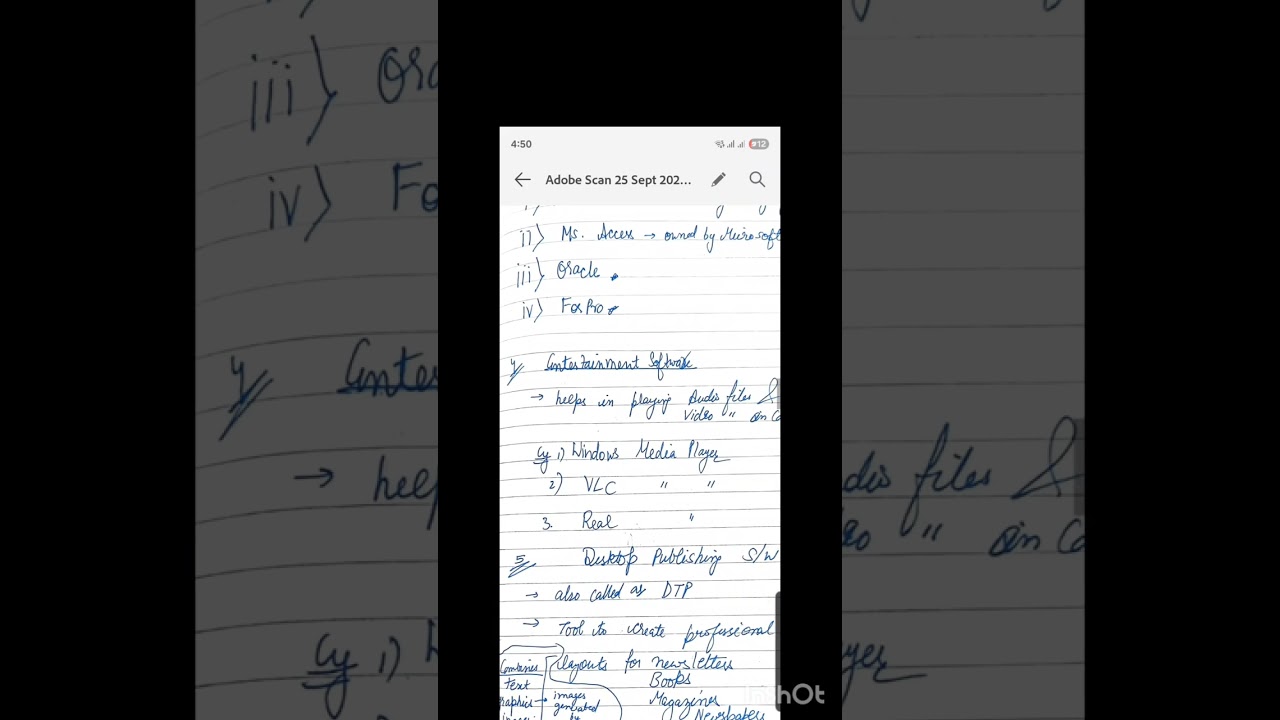 4:50
Adobe Scan 25 Sept 202...
ii) Ms. Access → owned by Microsoft
iii) Oracle
iv) FoxPro
4 Entertainment Software
→ helps in playing Audio files &
Video " on Co
eg 1) Windows Media Player
2) VLC " "
3. Real "
5 Desktop Publishing S/W
→ also called as DTP
→ Tool to create professional
layouts for newsletters
Books
Magazines
Newspapers
Combines
Text
images
generated
by
InShOt